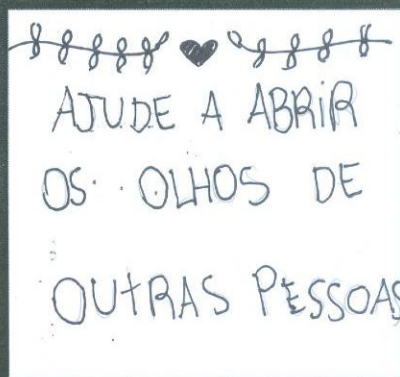 AJUDE A ABRIR
OS OLHOS DE
OUTRAS PESSOAS